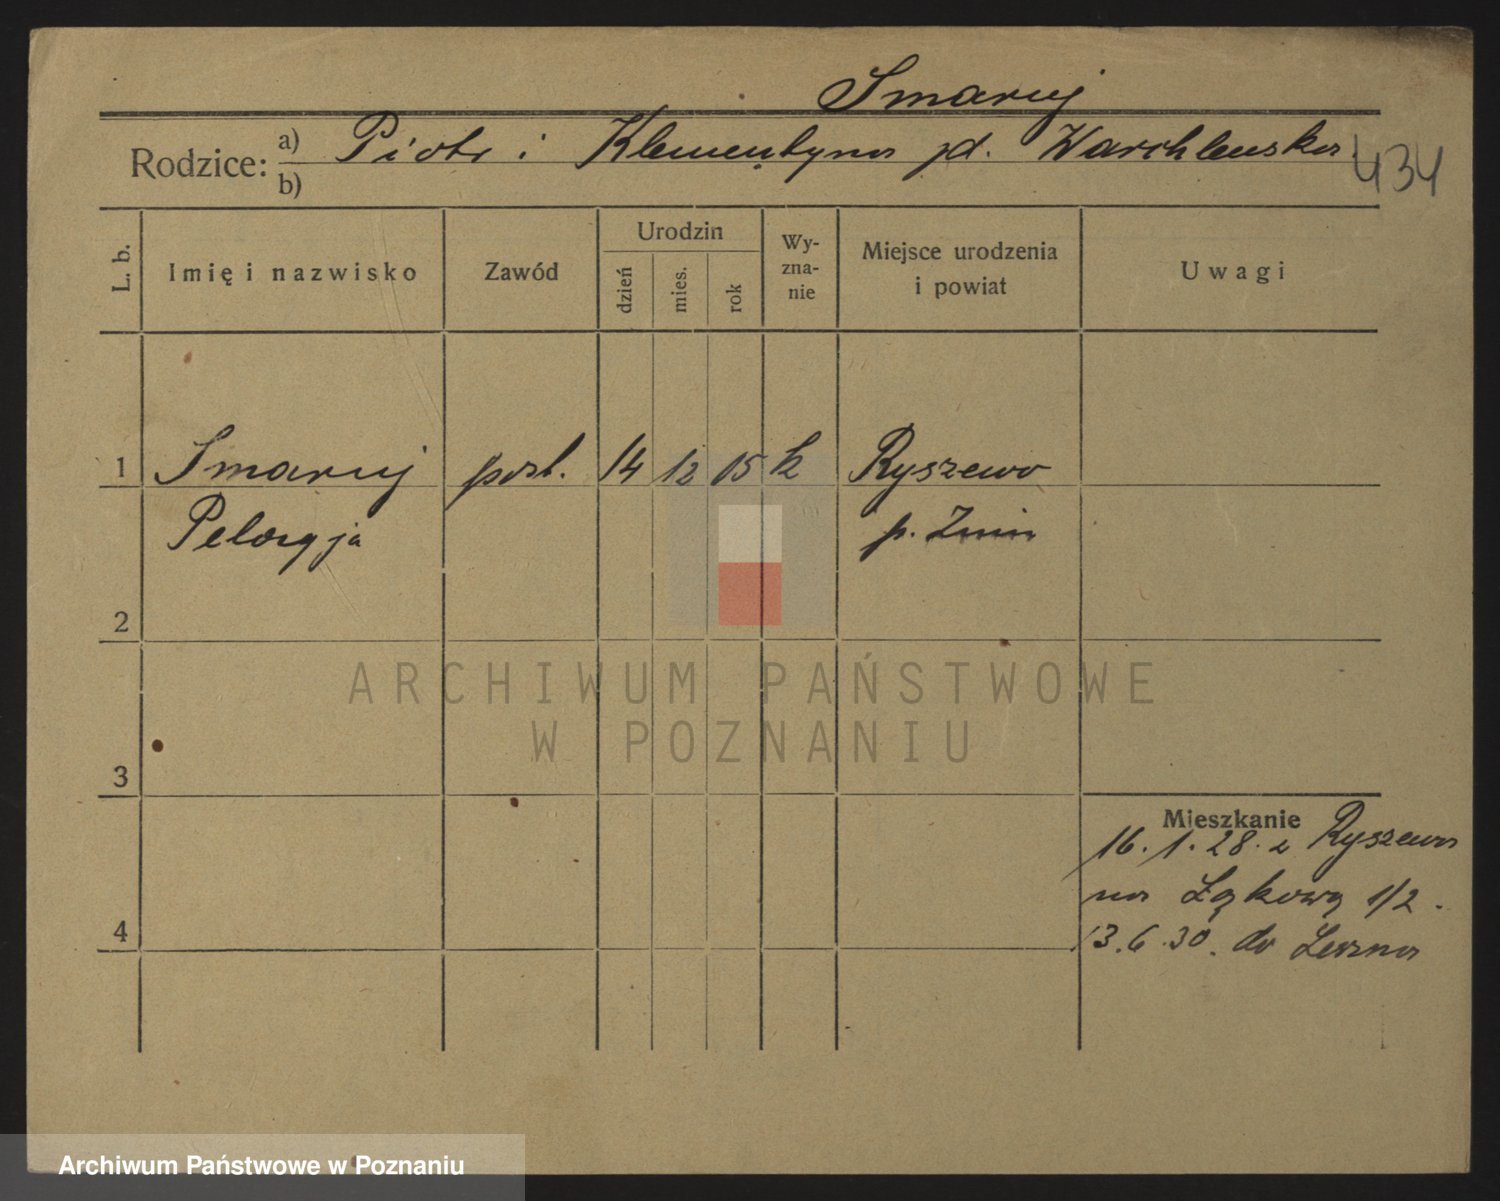 Smaruj
Rodzice: a) Piotr i Klementyna zd. Warchlewska 434
b)
L. b. Imię i nazwisko Zawód Urodzin dzień mies. rok Wyznanie Miejsce urodzenia i powiat Uwagi
1 Smaruj post. 14 12 05 k Ryszewo
Pelagja p. Żnin
2
ARCHIWUM PAŃSTWOWE
W POZNANIU
3
Mieszkanie
16.1.28. z Ryszewa
na Łąkową 1/2.
4
13.6.30. do Leszna
Archiwum Państwowe w Poznaniu